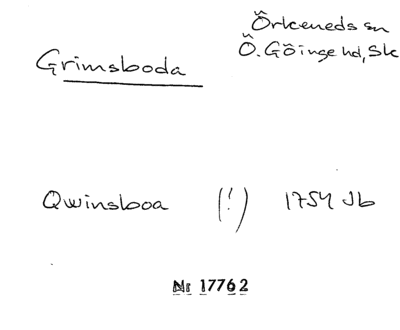 Örkeneds sn
Grimsboda Ö. Göinge hd, Sk
Qwinsboa (!) 1754 Jb
Nr 17762